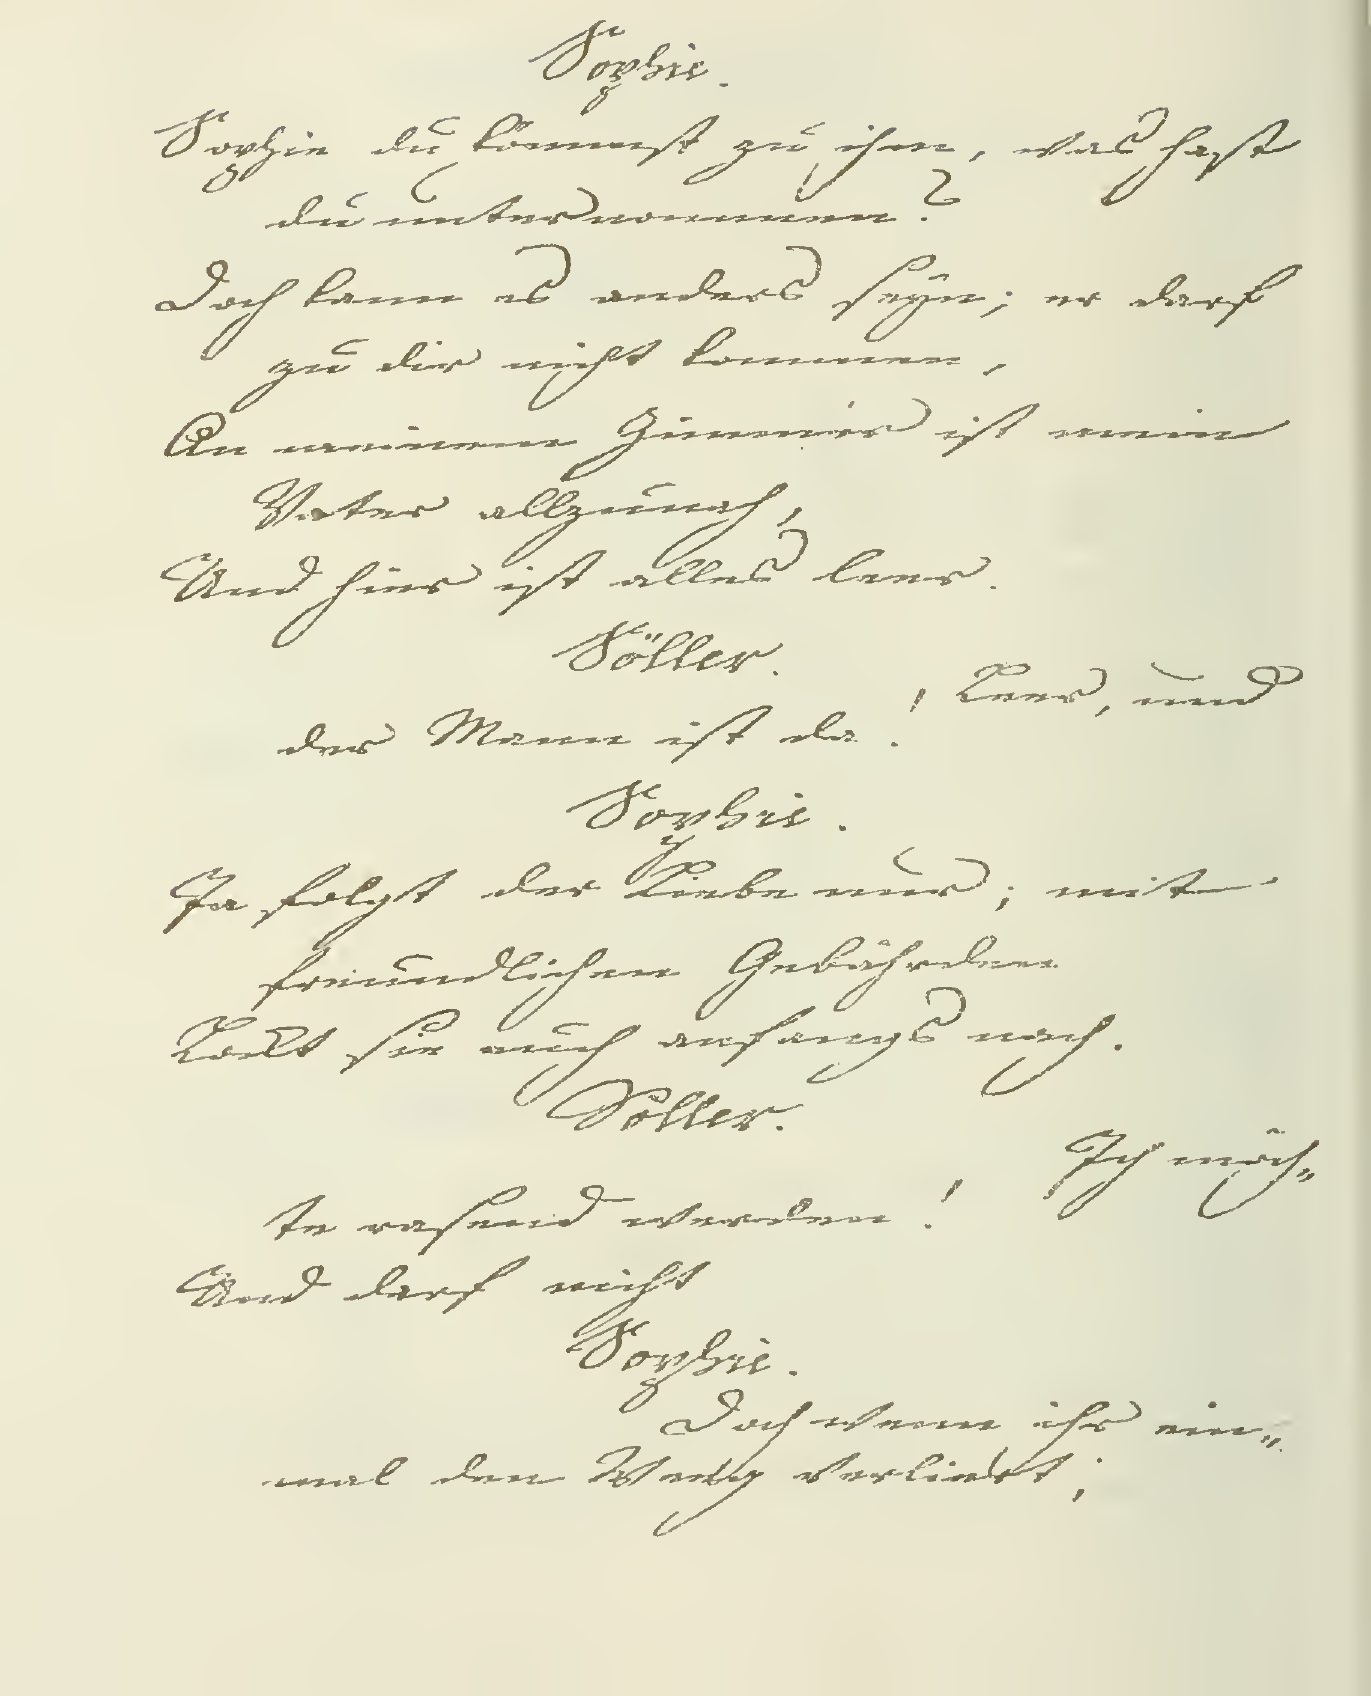 Sophie.
Sophie du kömmst zu ihm, was hast
du unternommen?
Doch kann es anders seyn; er darf
zu dir nicht kommen,
An meinem Zimmer ist mein
Vater allzunah,
Und hier ist alles leer.
Söller.
Leer, und
der Mann ist da!
Sophie.
Ja folgt der Liebe nur; mit
freundlichen Gebährden
Lockt sie euch anfangs nach.
Söller.
Ich möch„
te rasend werden!
Und darf nicht
Sophie.
Doch wenn ihr ein„
mal den Weeg verliert;